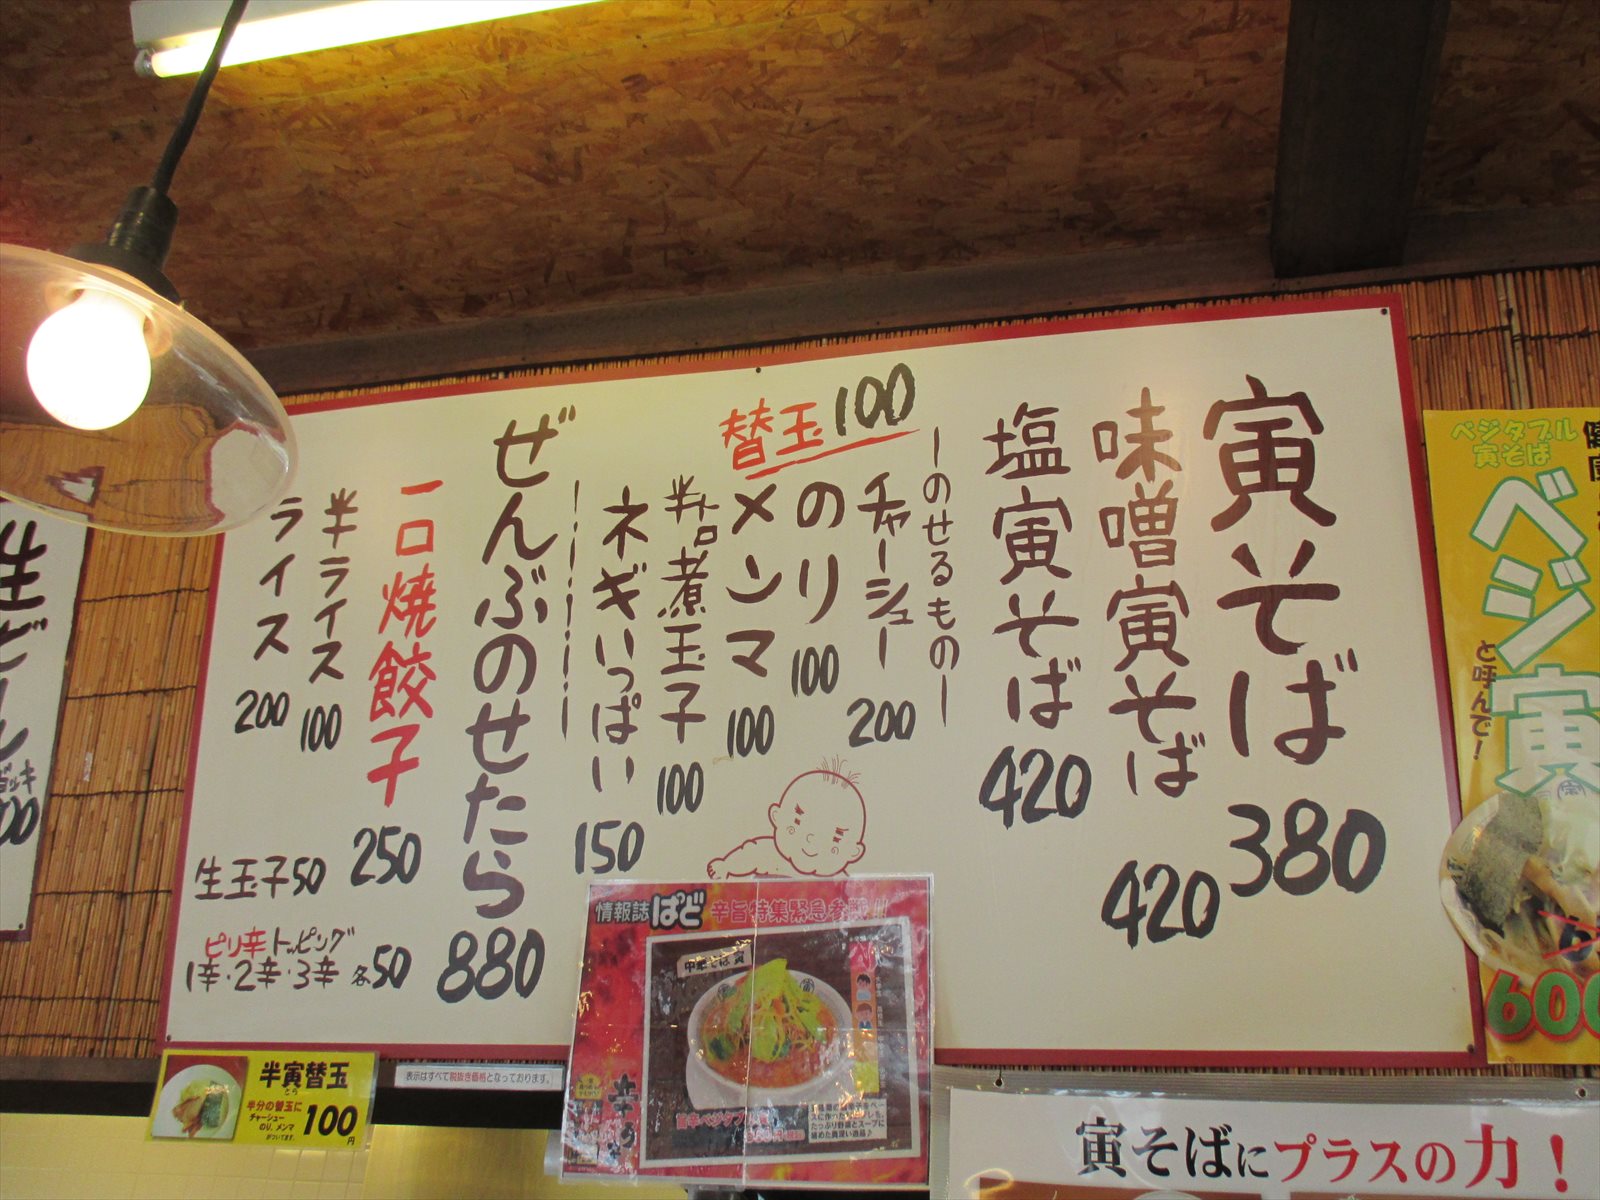 寅そば 380
味噌寅そば 420
塩寅そば 420
ーのせるものー
チャーシュー 200
のり 100
メンマ 100
半トロ煮玉子 100
ネギいっぱい 150
替玉100
ぜんぶのせたら 880
一口焼餃子 250
半ライス 100
ライス 200
生玉子50
ピリ辛トッピング
1辛・2辛・3辛 各50
ベジタブル
寅そば
ベジ寅
と呼んで!
600
半寅替玉
とら
半分の替玉に
チャーシュー
のり、メンマ
がついてます。
100円
表示はすべて税抜き価格となっております。
情報誌 ぱど 辛旨特集緊急参戦!!
中華そば 寅
寅そばにプラスの力!